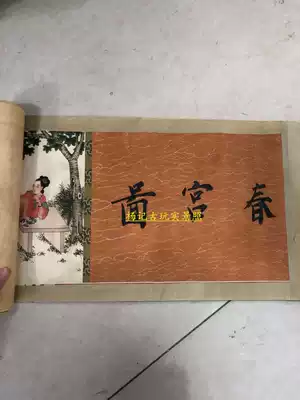 春宮圖
杨记古玩实景照